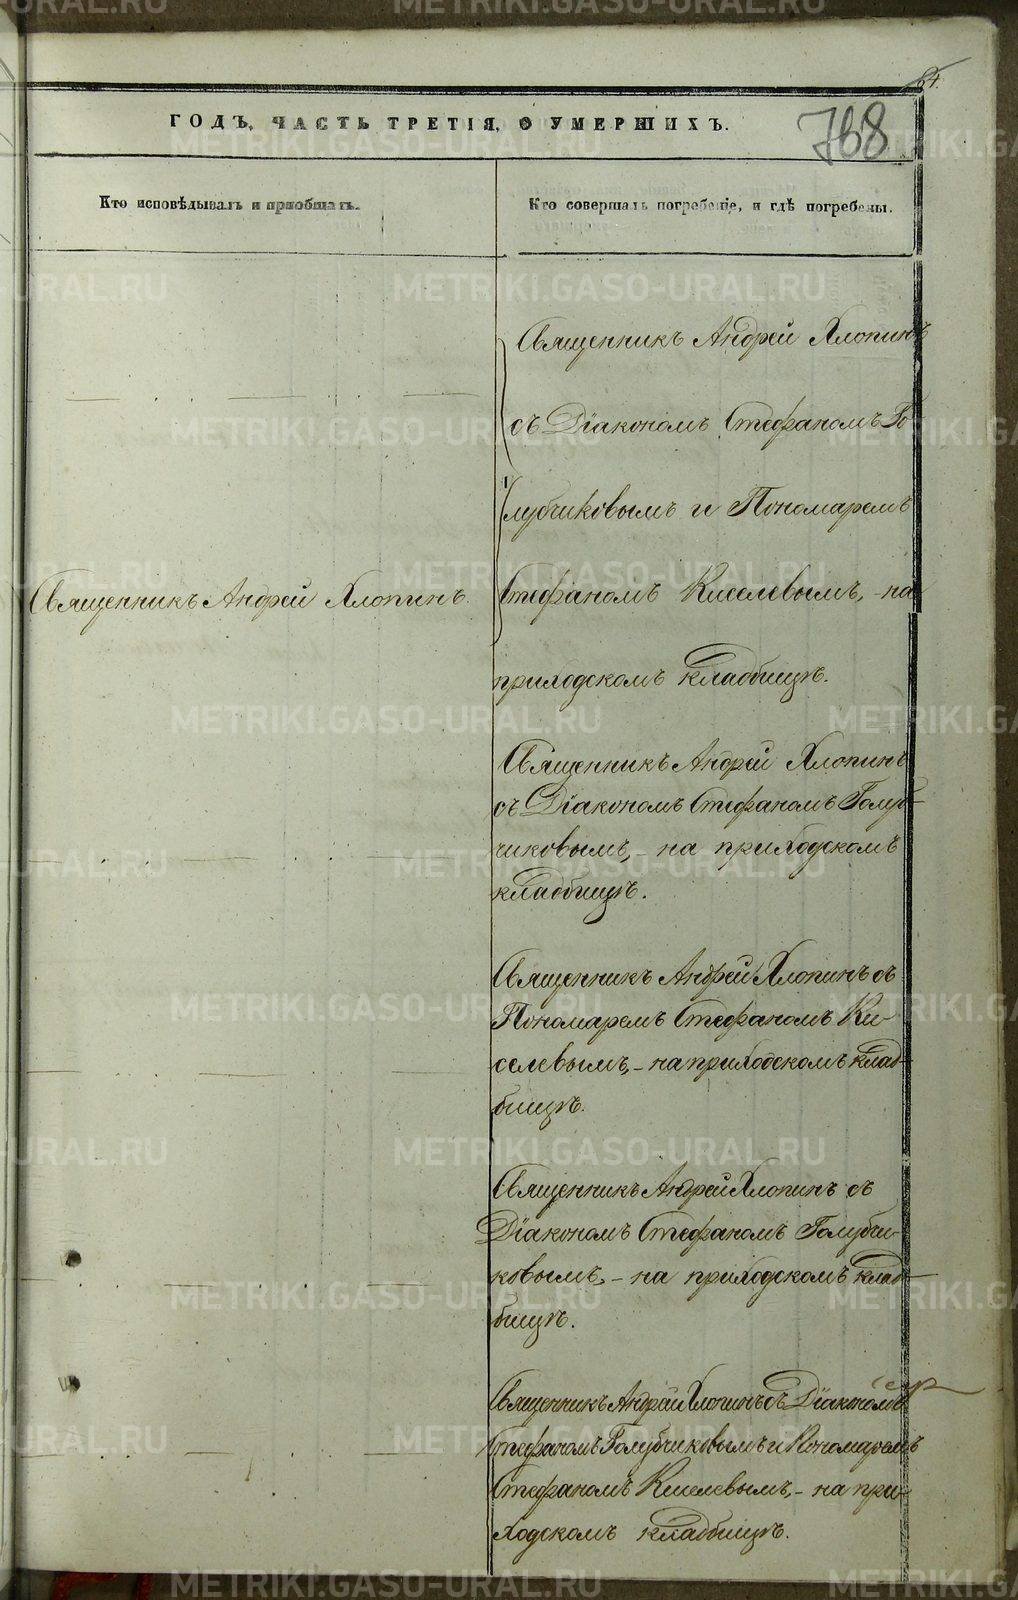 64.
ГОДЪ, ЧАСТЬ ТРЕТІЯ, О УМЕРШИХЪ.
768
Кто исповѣдывалъ и приобщалъ.
Кто совершалъ погребеніе, и гдѣ погребены.
Священникъ Андрей Хлопинъ
съ Діакономъ Стефаномъ Го
лубчиковымъ и Пономаремъ
Священникъ Андрей Хлопинъ.
Стефаномъ Киселевымъ, - на
приходскомъ кладбищѣ.
Священникъ Андрей Хлопинъ
съ Діакономъ Стефаномъ Голуб-
чиковымъ, - на приходскомъ
кладбищѣ.
Священникъ Андрей Хлопинъ съ
Пономаремъ Стефаномъ Ки-
селевымъ, - на приходскомъ клад-
бищѣ.
Священникъ Андрей Хлопинъ съ
Діакономъ Стефаномъ Голубчи-
ковымъ, - на приходскомъ клад-
бищѣ.
Священникъ Андрей Хлопинъ съ Діакономъ
Стефаномъ Голубчиковымъ и Пономаремъ
Стефаномъ Киселевымъ, - на при-
ходскомъ кладбищѣ.
METRIKI.GASO-URAL.RU